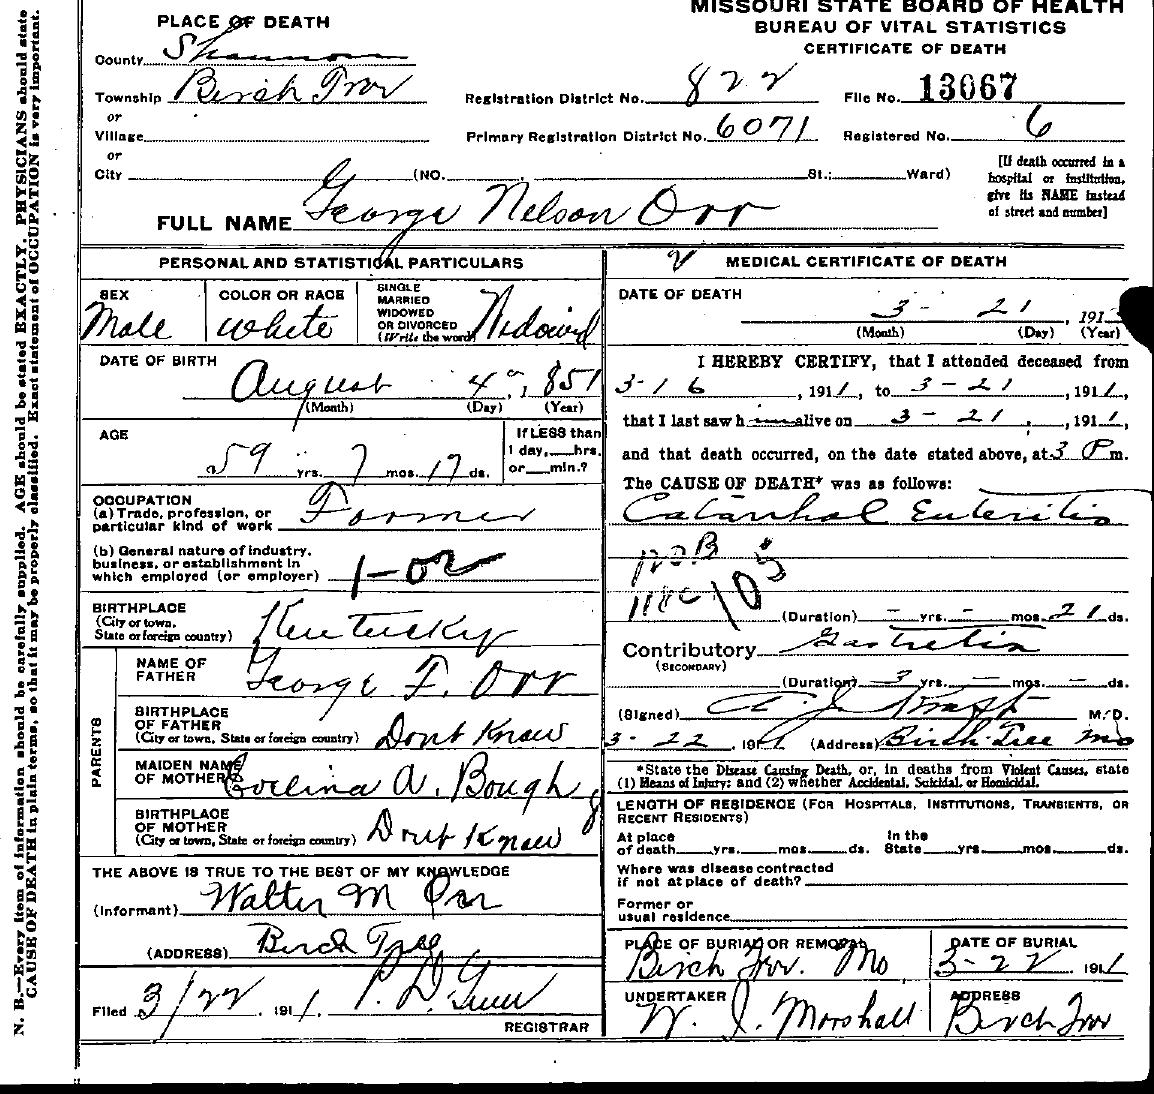 MISSOURI STATE BOARD OF HEALTH
BUREAU OF VITAL STATISTICS
CERTIFICATE OF DEATH
PLACE OF DEATH
County Shannon
Township Birch Tree
or
Village
or
City (NO. , St.; Ward)
Registration District No. 822
File No. 13067
Primary Registration District No. 6071
Registered No. 6
[If death occurred in a
hospital or institution,
give its NAME instead
of street and number]
FULL NAME George Nelson Orr
PERSONAL AND STATISTICAL PARTICULARS
SEX
Male
COLOR OR RACE
White
SINGLE
MARRIED
WIDOWED
OR DIVORCED
(Write the word)
Widowed
DATE OF BIRTH
August 4, 1851
(Month) (Day) (Year)
AGE
59 yrs. 7 mos. 17 ds.
If LESS than
1 day, hrs.
or min.?
OCCUPATION
(a) Trade, profession, or
particular kind of work Farmer
(b) General nature of industry,
business, or establishment in
which employed (or employer)
1-02
BIRTHPLACE
(City or town,
State or foreign country) Kentucky
PARENTS
NAME OF
FATHER George F. Orr
BIRTHPLACE
OF FATHER
(City or town, State or foreign country) Dont Know
MAIDEN NAME
OF MOTHER A. Bough
BIRTHPLACE
OF MOTHER
(City or town, State or foreign country) Dont Know
THE ABOVE IS TRUE TO THE BEST OF MY KNOWLEDGE
(Informant) Walter M Orr
(ADDRESS) Birch Tree
Filed 3/22, 1911.
REGISTRAR
MEDICAL CERTIFICATE OF DEATH
DATE OF DEATH
3 - 21, 191
(Month) (Day) (Year)
I HEREBY CERTIFY, that I attended deceased from
3-16, 1911, to 3-21, 1911,
that I last saw h im alive on 3-21, 1911,
and that death occurred, on the date stated above, at 3 P m.
The CAUSE OF DEATH* was as follows:
Catarrhal Enteritis
120B
105
(Duration) - yrs. - mos. 21 ds.
Contributory Gastritis
(SECONDARY)
(Duration) 3 yrs. - mos. - ds.
(Signed) M.D.
3-22, 1911 (Address) Birch Tree Mo
*State the Disease Causing Death, or, in deaths from Violent Causes, state
(1) Means of Injury; and (2) whether Accidental, Suicidal, or Homicidal.
LENGTH OF RESIDENCE (FOR HOSPITALS, INSTITUTIONS, TRANSIENTS, OR
RECENT RESIDENTS)
At place
of death yrs. mos. ds.
In the
State yrs. mos. ds.
Where was disease contracted
if not at place of death?
Former or
usual residence
PLACE OF BURIAL OR REMOVAL
Birch Tree. Mo
DATE OF BURIAL
3-22 1911
UNDERTAKER
W. J. Marshall
ADDRESS
Birch Tree
N. B.—Every item of information should be carefully supplied. AGE should be stated EXACTLY. PHYSICIANS should state
CAUSE OF DEATH in plain terms, so that it may be properly classified. Exact statement of OCCUPATION is very important.